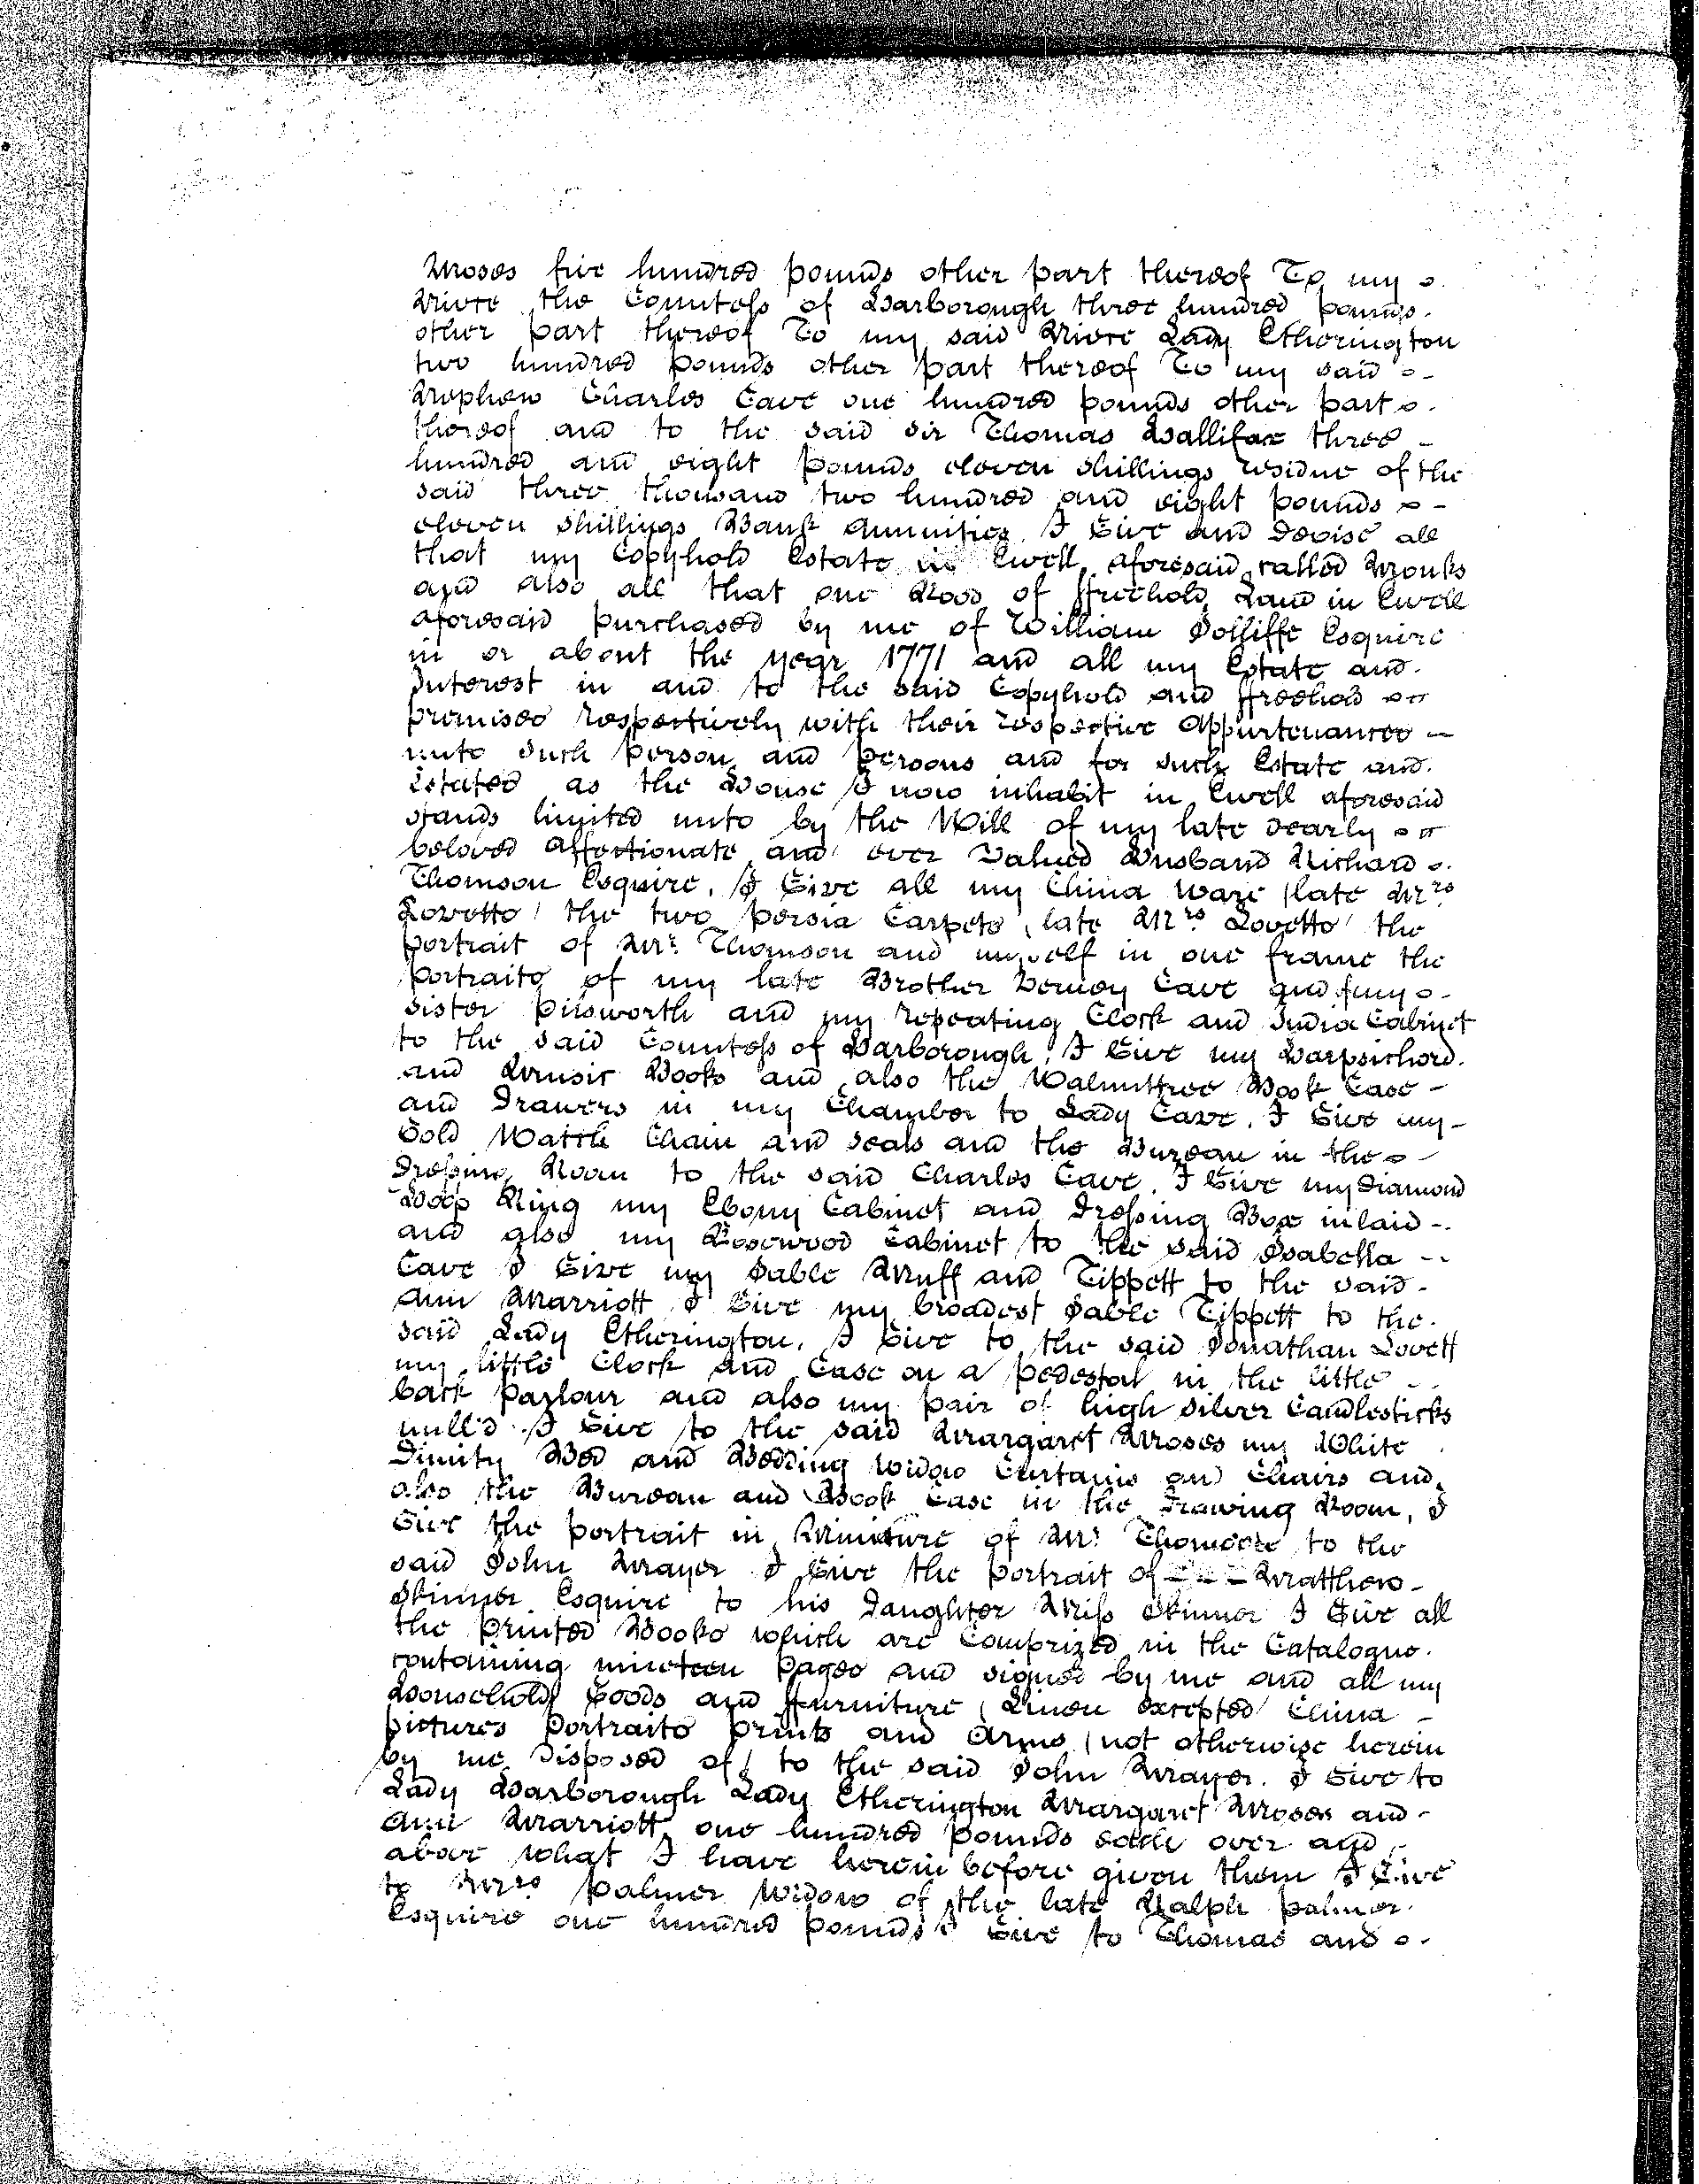 Moses five hundred pounds other part thereof To my
Niece the Countess of Harborough three hundred pounds
other part thereof To my said Niece Lady Etherington
two hundred pounds other part thereof To my said
Nephew Charles Cave one hundred pounds other part
thereof and to the said Sir Thomas Hallifax three
hundred and eight pounds eleven shillings residue of the
said three thousand two hundred and eight pounds
eleven shillings Bank Annuities. I Give and Devise all
that my Copyhold Estate in Ewell aforesaid called Monks
and also all that one Rood of ffreehold Land in Ewell
aforesaid purchased by me of William Jolliffe Esquire
in or about the year 1771 and all my Estate and
Interest in and to the said Copyhold and ffreehold
premises respectively with their respective Appurtenances
unto such person and persons and for such Estate and
Estates as the House I now inhabit in Ewell aforesaid
stands limited unto by the Will of my late dearly
beloved Affectionate and ever Valued Husband Richard
Thomson Esquire. I Give all my China ware (late Mrs
Lovetts) the two persia Carpets (late Mrs Lovetts) the
portrait of Mr. Thomson and myself in one frame the
portraits of my late Brother Verney Cave and my
sister pilsworth and my repeating Clock and India Cabinet
to the said Countess of Harborough, I Give my Harpsichord
and Musir Books and also the Walnuttree Book Case -
and Drawers in my Chamber to Lady Cave. I Give my -
Gold Watch Chain and seals and the Bureau in the
Dressing Room to the said Charles Cave. I Give my Diamond
Hoop Ring my Ebony Cabinet and Dressing Box inlaid -
and also my Rosewood Cabinet to the said Isabella
Cave I Give my Sable Muff and Tippett to the said
Ann Marriott I Give my broadest Sable Tippett to the
said Lady Etherington. I Give to the said Jonathan Lovett
my little Clock and Case on a pedestal in the little
back parlour and also my pair of high silver Candlesticks
null'd I Give to the said Margaret Moses my White
Dimity Bed and Bedding Widow Curtains and Chairs and
also the Bureau and Book Case in the Drawing Room, I
Give the portrait in Miniture of Mr. Thomson to the
said John Mayer I Give the portrait of Matthew
Skinner Esquire to his Daughter Miss Skinner I Give all
the printed Books which are Comprized in the Catalogue
containing nineteen pages and signed by me and all my
Household Goods and ffurniture (Linen excepted) China -
pictures portraits prints and Arms (not otherwise herein
by me disposed of) to the said John Mayer. I Give to
Lady Harborough Lady Etherington Margaret Moses and
Ann Marriott one hundred pounds each over and
above what I have herein before given them I Give
to Mrs palmer Widow of the late Ralph palmer
Esquire one hundred pounds I Give to Thomas and